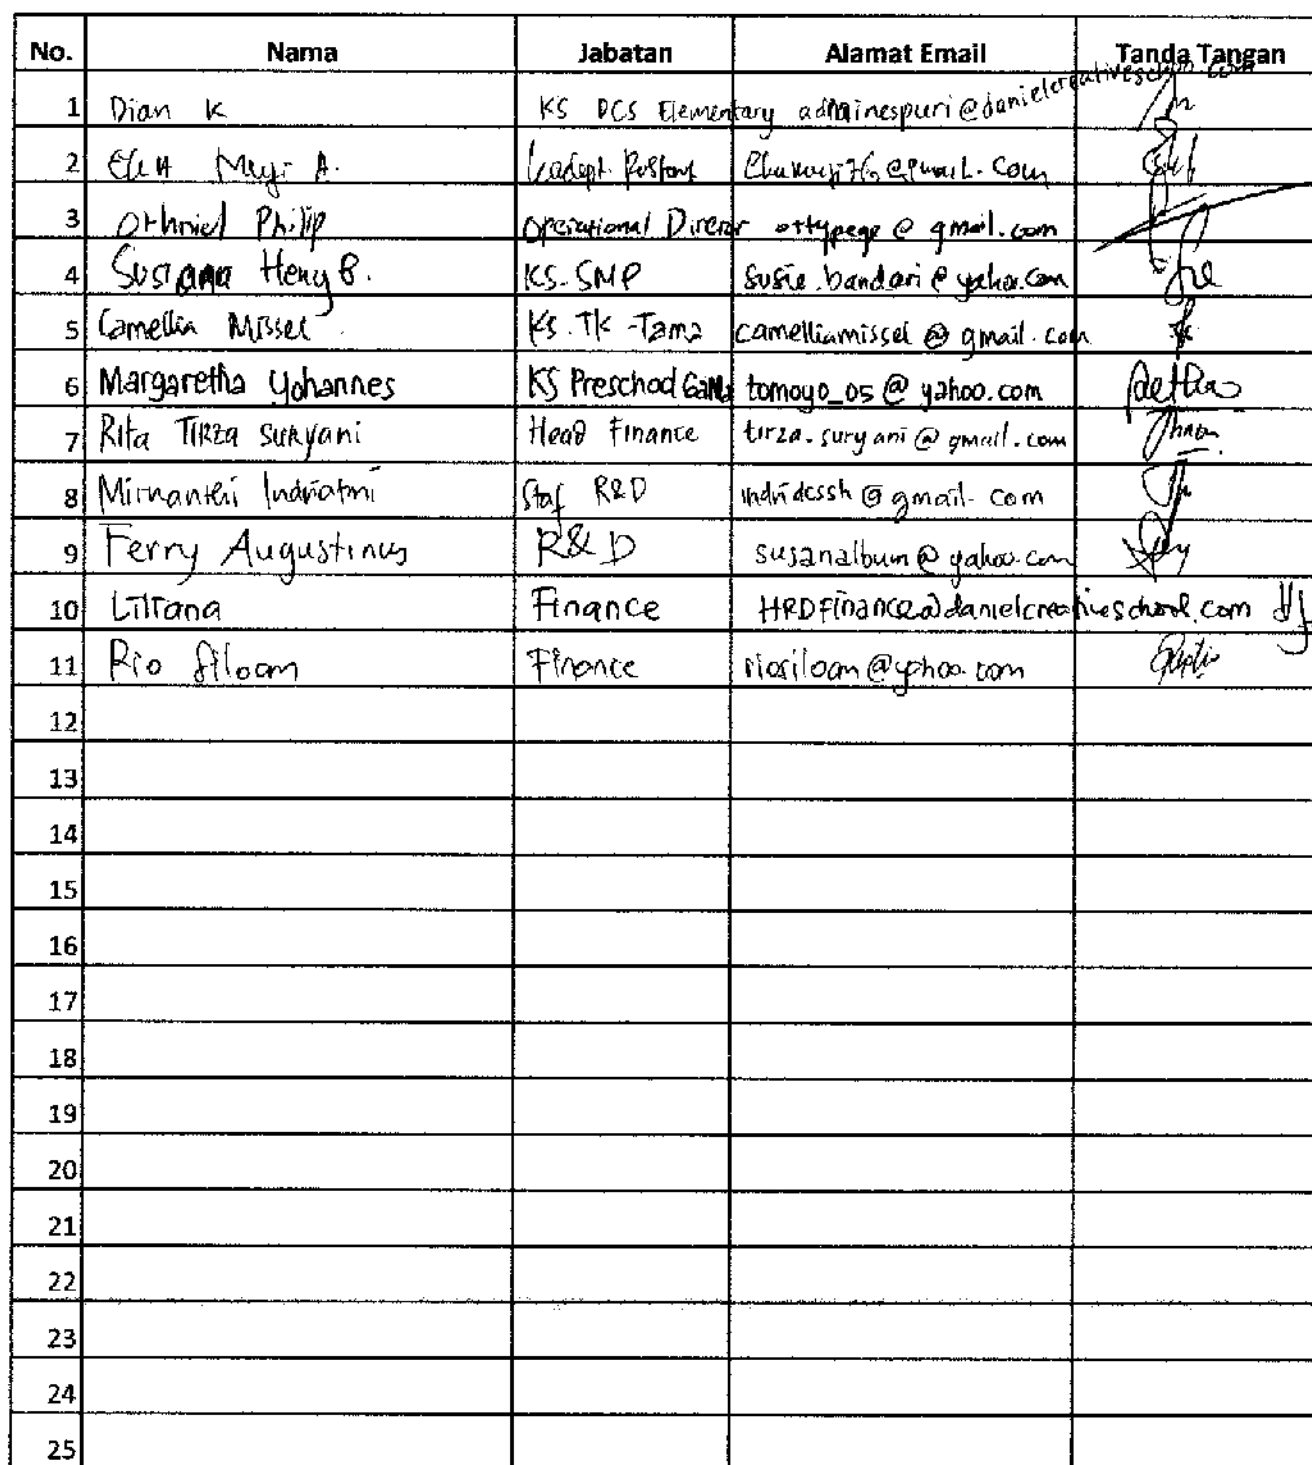 No. Nama Jabatan Alamat Email Tanda Tangan
1 Dian K KS DCS Elementary adminespuri@danielcreativeschool.com
2 Muji A.
3 Othniel Philip Operational Director ottypege@gmail.com
4 Susiana Heny B. KS. SMP susie.bandari@yahoo.com
5 Camellia Missel KS. TK - Tama camelliamissel@gmail.com
6 Margaretha Yohannes KS Preschool tomoyo_05@yahoo.com
7 Rita Tirza Suryani Head Finance tirza.suryani@gmail.com
8 Indriatmi Staf R&D indridcssh@gmail.com
9 Ferry Augustinus R&D susanalbum@yahoo.com
10 Litrana Finance HRDFinance@danielcreativeschool.com
11 Rio Siloam Finance riosiloam@yahoo.com
12
13
14
15
16
17
18
19
20
21
22
23
24
25